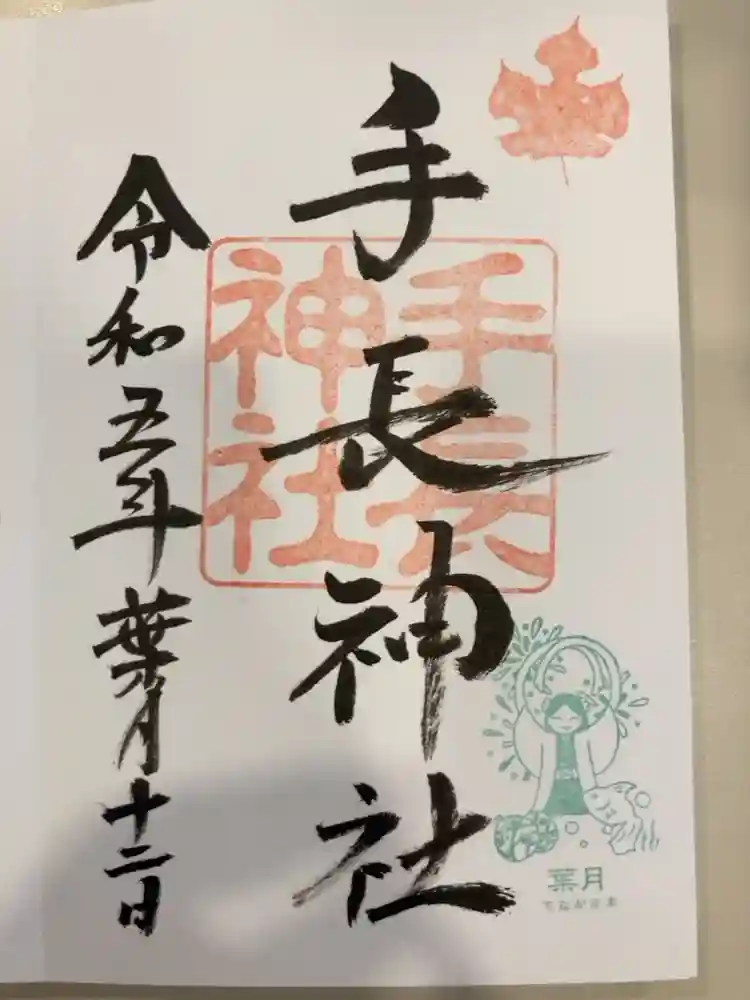 手長神社
手長
神社
令和五年葉月十二日
葉月